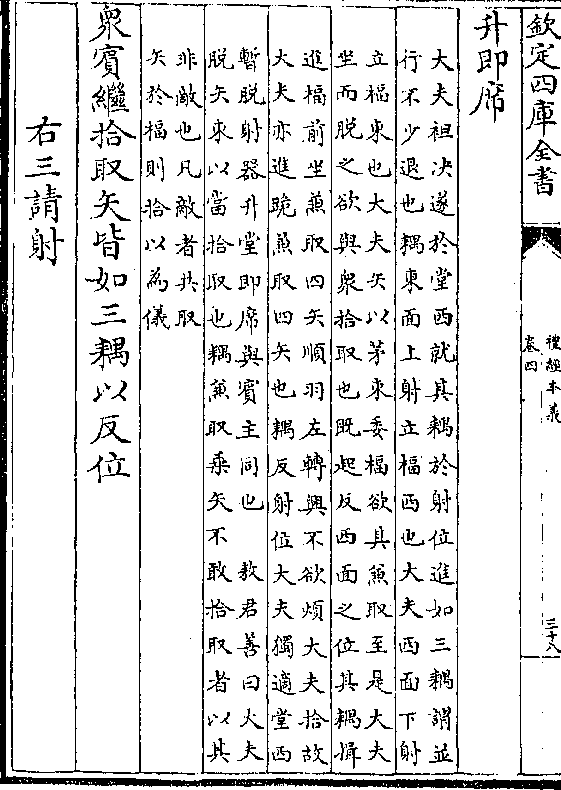 欽定四庫全書
禮經本義
卷四
三十八
升即席
大夫袒决遂於堂西就其耦於射位進如三耦謂並
行不少退也耦東面上射立福西也大夫西面下射
立福東也大夫矢以茅束委福欲其兼取至是大夫
坐而脱之欲與衆拾取也既起反西面之位其耦揖
進福前坐兼取四矢順羽左轉興不欲煩大夫拾故
大夫亦進跪兼取四矢也耦反射位大夫獨適堂西
暫脱射器升堂即席與賓主同也 敖君善曰大夫
脱矢束以當拾取也耦兼取乘矢不敢拾取者以其
非敵也凡敵者共取
矢於福則拾以為儀
衆賓繼拾取矢皆如三耦以反位
右三請射